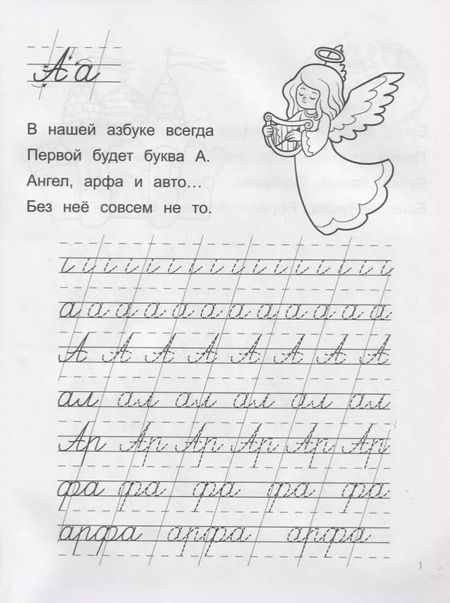 Аа
В нашей азбуке всегда
Первой будет буква А.
Ангел, арфа и авто...
Без неё совсем не то.
а а а а а а а а а а а а а
А А А А А А А А
ал ал ал ал ал ал
Ар Ар Ар Ар Ар Ар
фа фа фа фа фа
арфа арфа арфа
1